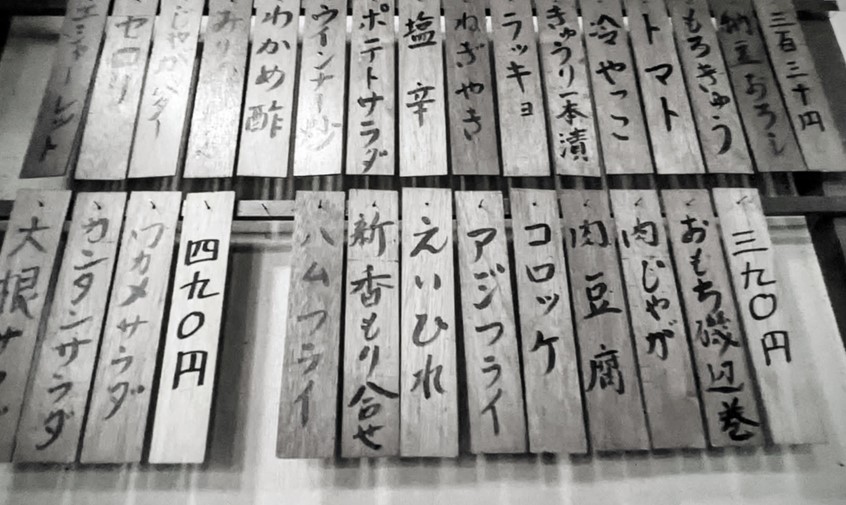 三百三十円
納豆おろし
もろきゅう
トマト
冷やっこ
きゅうり一本漬
ラッキョ
ねぎやき
塩辛
ポテトサラダ
ウインナー炒
わかめ酢
じゃがバター
セロリ
エシャーレット
三九〇円
おもち磯辺巻
肉じゃが
肉豆腐
コロッケ
アジフライ
えいひれ
新香もり合せ
ハムフライ
四九〇円
ワカメサラダ
カンタンサラダ
大根サラダ